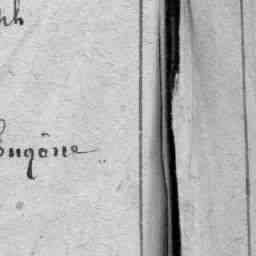 ph
Eugène